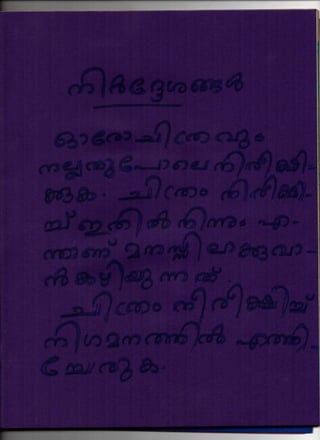 നിർദ്ദേശങ്ങൾ
ഓരോ ചിത്രവും
നല്ലതുപോലെ നിരീക്ഷി-
ക്കുക. ചിത്രം നിരീക്ഷി-
ച്ച് ഇതിൽ നിന്നും എ-
ന്താണ് മനസ്സിലാക്കുവാ-
ൻ കഴിയുന്നത്.
ചിത്രം നിരീക്ഷിച്ച്
നിഗമനത്തിൽ എത്തി-
ച്ചേരുക.